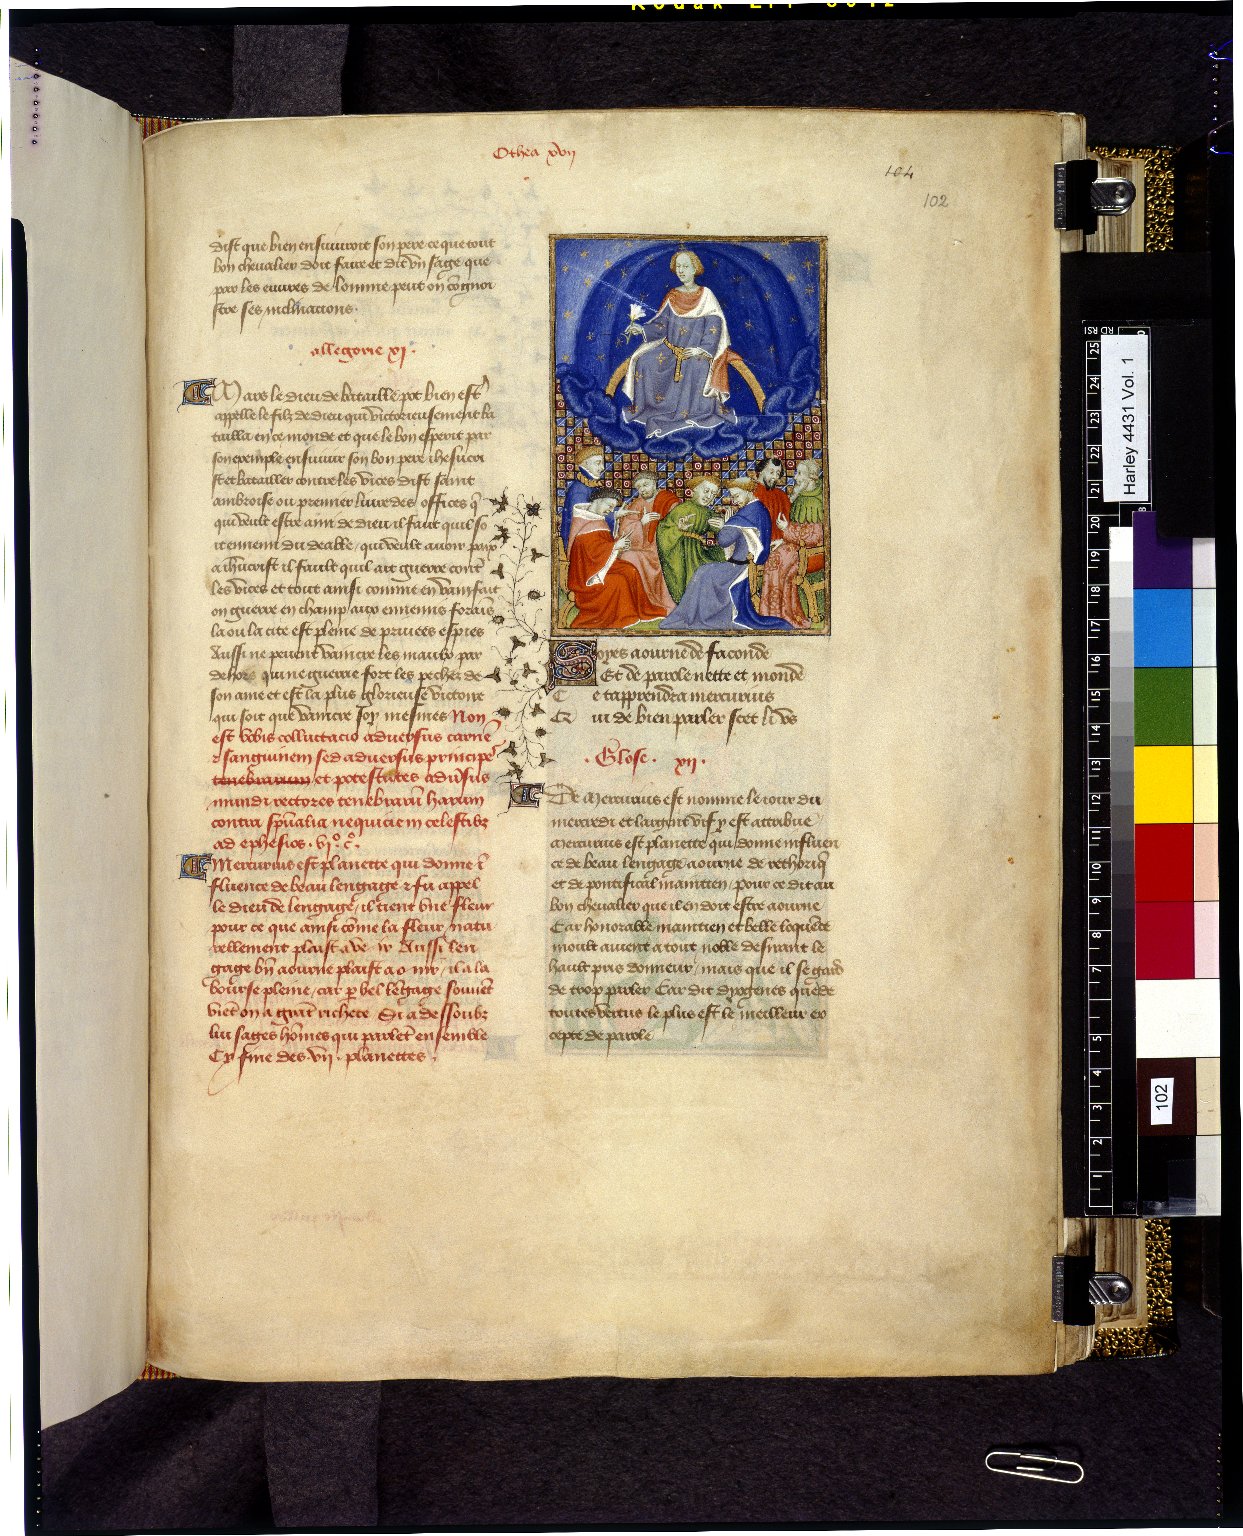 Kodak
Othea xvij
104
102
dist que bien ensuivroit son pere ce que tout
bon chevalier doit faire et dit vn sage que
par les euures de lomme peut on cognoi
stre ses inclinacions.
allegorie xj.
Mars le dieu de bataille pot bien estr
appelle le filz de dieu qui victorieusement ba
tailla en ce monde et que le bon esperit par
son exemple ensuiuir son bon pere ihesucri
st et batailler contre les vices dist saint
ambroise ou premier liure des offices q
qui veult estre ami de dieu il faut quil so
it ennemi du deable qui veult auoir paix
a ihucrist il fault quil ait guerre cont
les vices et tout ainsi comme en vain fait
on guerre en champ aux ennemis forains
la ou la cite est pleine de priuees espies
Aussi ne peuent vaincre les maulx par
dehors qui ne guerrie fort les pechez de
son ame et est la plus glorieuse victoire
qui soit que vaincre soy mesmes Non
est vobis colluctacio aduersus carnē
& sanguinem sed aduersus principes
tenebrarum et potestates aduersus
mundi rectores tenebrarū harum
contra spūalia nequicie in celestibz
ad ephesios. vi° c°.
Mercurius est planette qui donne ī
fluence de beau lengage & fu appel
le dieu de lengage, il tient vne fleur
pour ce que ainsi cōme la fleur natu
rellement plaist a veoir Aussi len
gage bn aourne plaist a oir, il a la
bourse pleine, car p bel lēgage souuēt
viēt on a grāt richece Si a dessoubz
lui sages hōmes qui parlēt ensemble
Cy fine des .vij. planettes.
Soyes aourne de faconde
Et de parole nette et monde
Ce tapprendra mercurius
Qui de bien parler scet li vs
. Glose. xij.
De Mercurius est nomme le iour du
mercredi et largent vif y est attribue
Mercurius est planette qui donne influen
ce de beau lengage aourne de rethoriq
et de pontifical maintien, pour ce dit au
bon chevalier que il en doit estre aourne
Car honorable maintien et belle loquēce
moult auient a tout noble desirant le
hault pris donneur, mais que il se gard
de trop parler Car dit dyogenes que de
toutes vertus le plus est le meilleur ex
cepte de parole
Harley 4431 Vol. 1
102
25
24
23
22
21
20
19
18
17
16
15
14
13
12
11
10
9
8
7
5
4
3
2
1